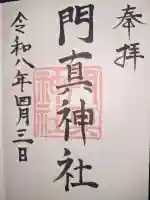 奉拝
門真神社
令和八年四月三日